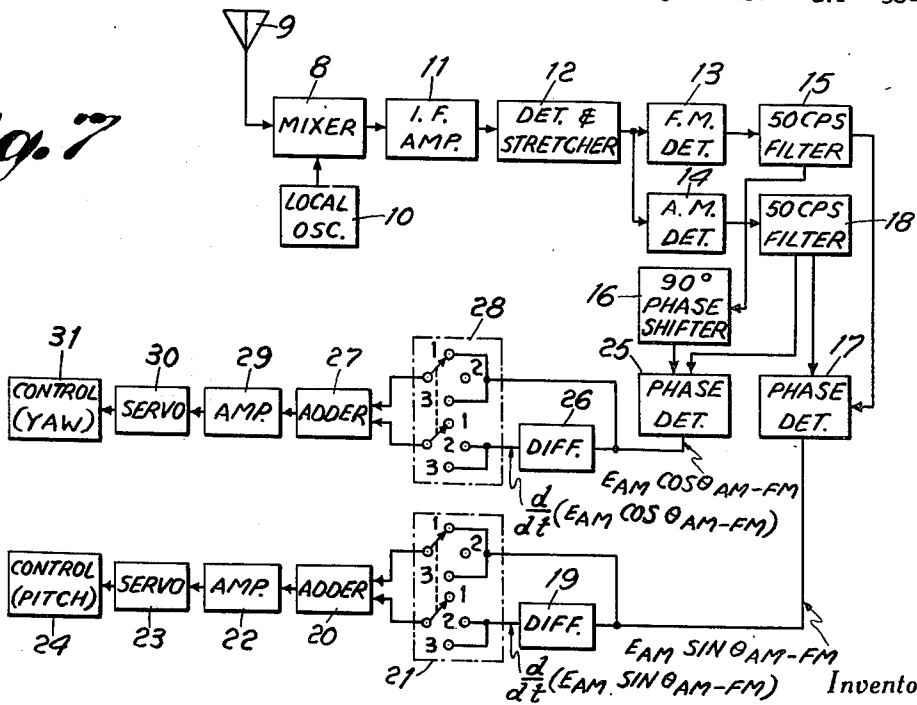 9
8
MIXER
11
I.F.
AMP.
12
DET. &
STRETCHER
13
F.M.
DET.
15
50 CPS
FILTER
LOCAL
OSC.
10
14
A.M.
DET.
50 CPS
FILTER
18
16
90°
PHASE
SHIFTER
31
CONTROL
(YAW)
30
SERVO
29
AMP.
27
ADDER
28
1
2
3
1
2
3
26
DIFF.
25
PHASE
DET.
17
PHASE
DET.
E_AM COS θ_AM-FM
d/dt (E_AM COS θ_AM-FM)
CONTROL
(PITCH)
24
SERVO
23
AMP.
22
ADDER
20
1
2
3
1
2
3
21
19
DIFF.
E_AM SIN θ_AM-FM
d/dt (E_AM. SIN θ_AM-FM)
Invento